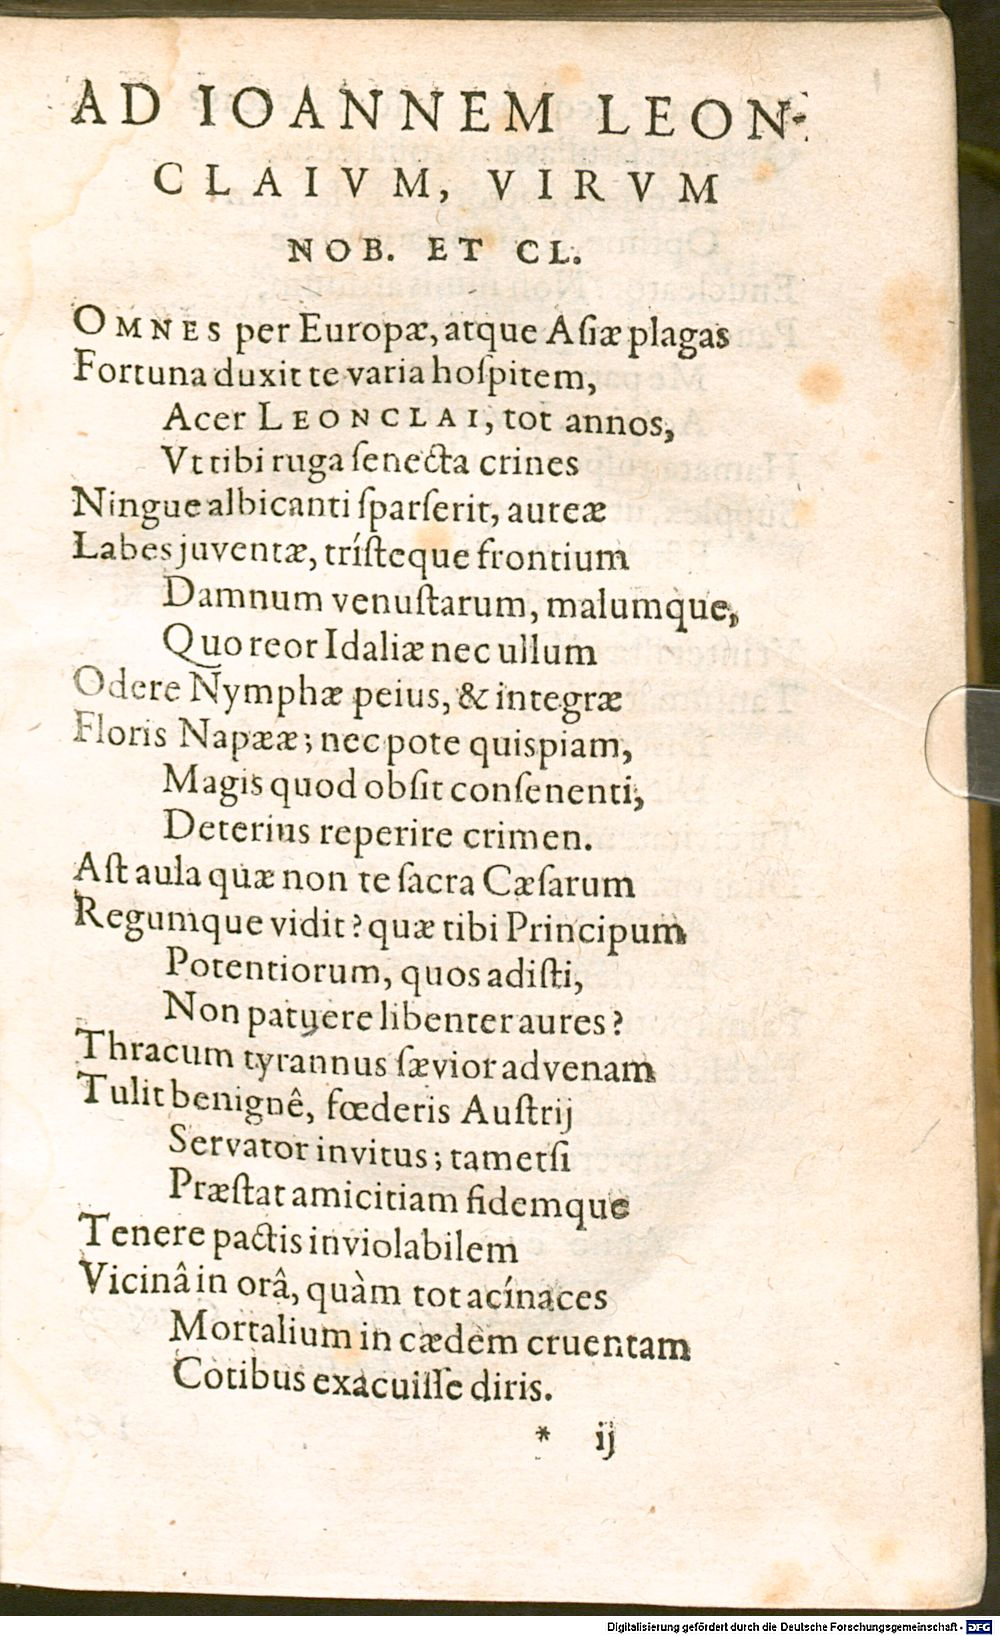 AD IOANNEM LEON-
CLAIVM, VIRVM
NOB. ET CL.
OMNES per Europæ, atque Aſiæ plagas
Fortuna duxit te varia hoſpitem,
Acer LEONCLAI, tot annos,
Vt tibi ruga ſenecta crines
Ningue albicanti ſparſerit, aureæ
Labes juventæ, trísteque frontium
Damnum venuſtarum, malumque,
Quo reor Idaliæ nec ullum
Odere Nymphæ peius, & integræ
Floris Napææ; nec pote quispiam,
Magis quod obſit conſenenti,
Deterius reperire crimen.
Aſt aula quæ non te ſacra Cæſarum
Regumque vidit? quæ tibi Principum
Potentiorum, quos adiſti,
Non patuere libenter aures?
Thracum tyrannus ſævior advenam
Tulit benignê, fœderis Auſtrij
Servator invitus; tametſi
Præſtat amicitiam fidemque
Tenere pactis inviolabilem
Vicinâ in orâ, quàm tot acínaces
Mortalium in cædem cruentam
Cotibus exacuiſſe diris.
* ij
Digitalisierung gefördert durch die Deutsche Forschungsgemeinschaft - DFG